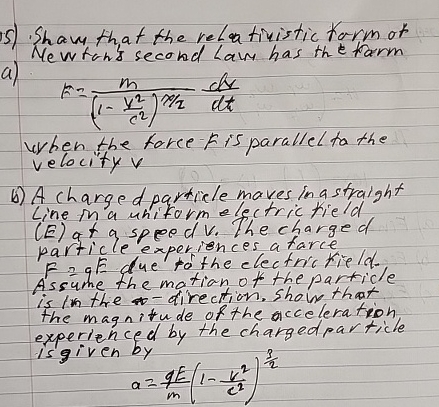 5) Show that the relativistic form of
Newton's second Law has the form
a)
F = m/(1 - v²/c²)^3/2 dv/dt
when the force F is parallel to the
velocity v
b) A charged particle moves in a straight
Line in a uniform electric field
(E) at a speed v. The charged
particle experiences a force
F = qE due to the electric field.
Assume the motion of the particle
is in the - direction. Show that
the magnitude of the acceleration
experienced by the charged particle
is given by
a = qE/m (1 - v²/c²)^3/2